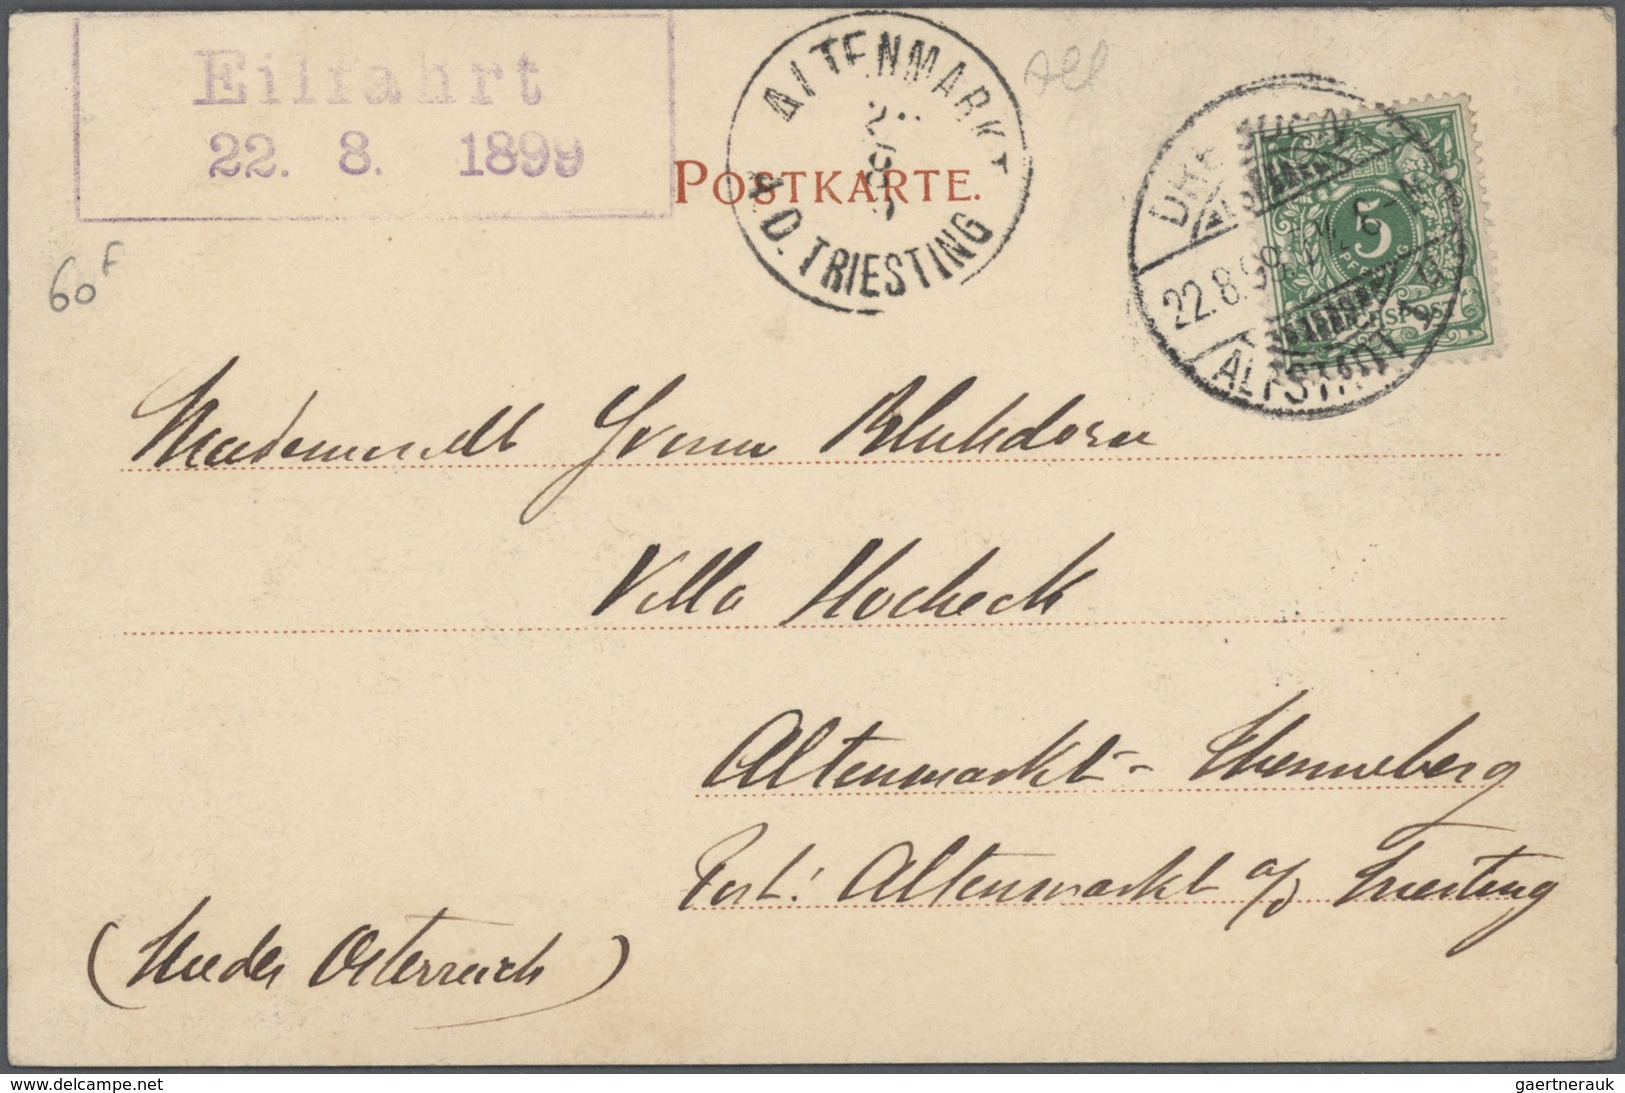 Eilfahrt
22. 8. 1899
POSTKARTE.
ALTENMARKT
A.D. TRIESTING
DRESDEN
22.8.99
ALTSTADT
5
PF
REICHSPOST
60 F
Mademoiselle Yvonne
Villa Hocheck
Altenmarkt-Thenneberg
Post: Altenmarkt a/d Triesting
(Nieder Österreich)
delcampe.net
gaertnerauk